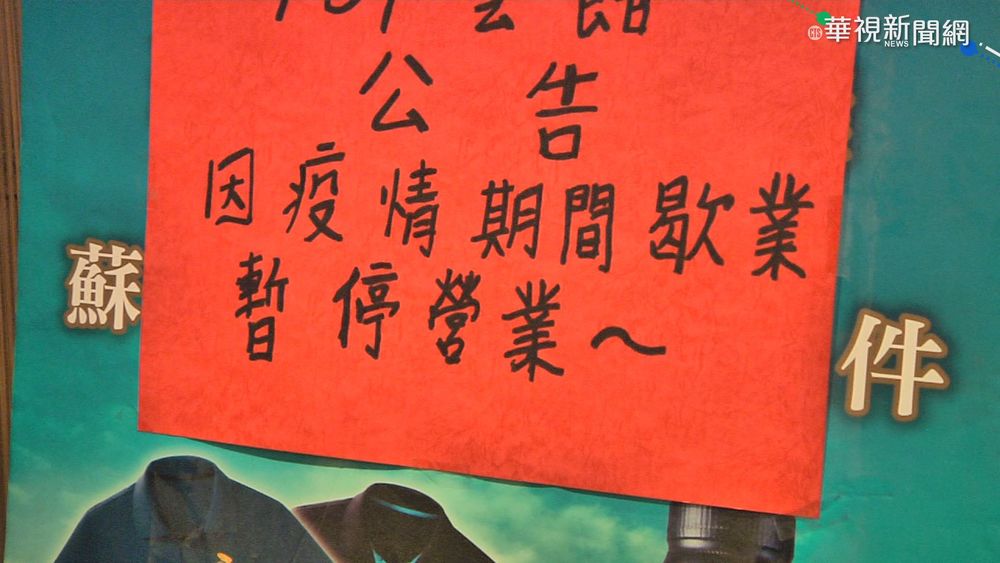 華視新聞網
CTS NEWS
會館
公告
因疫情期間歇業
暫停營業~
蘇
件